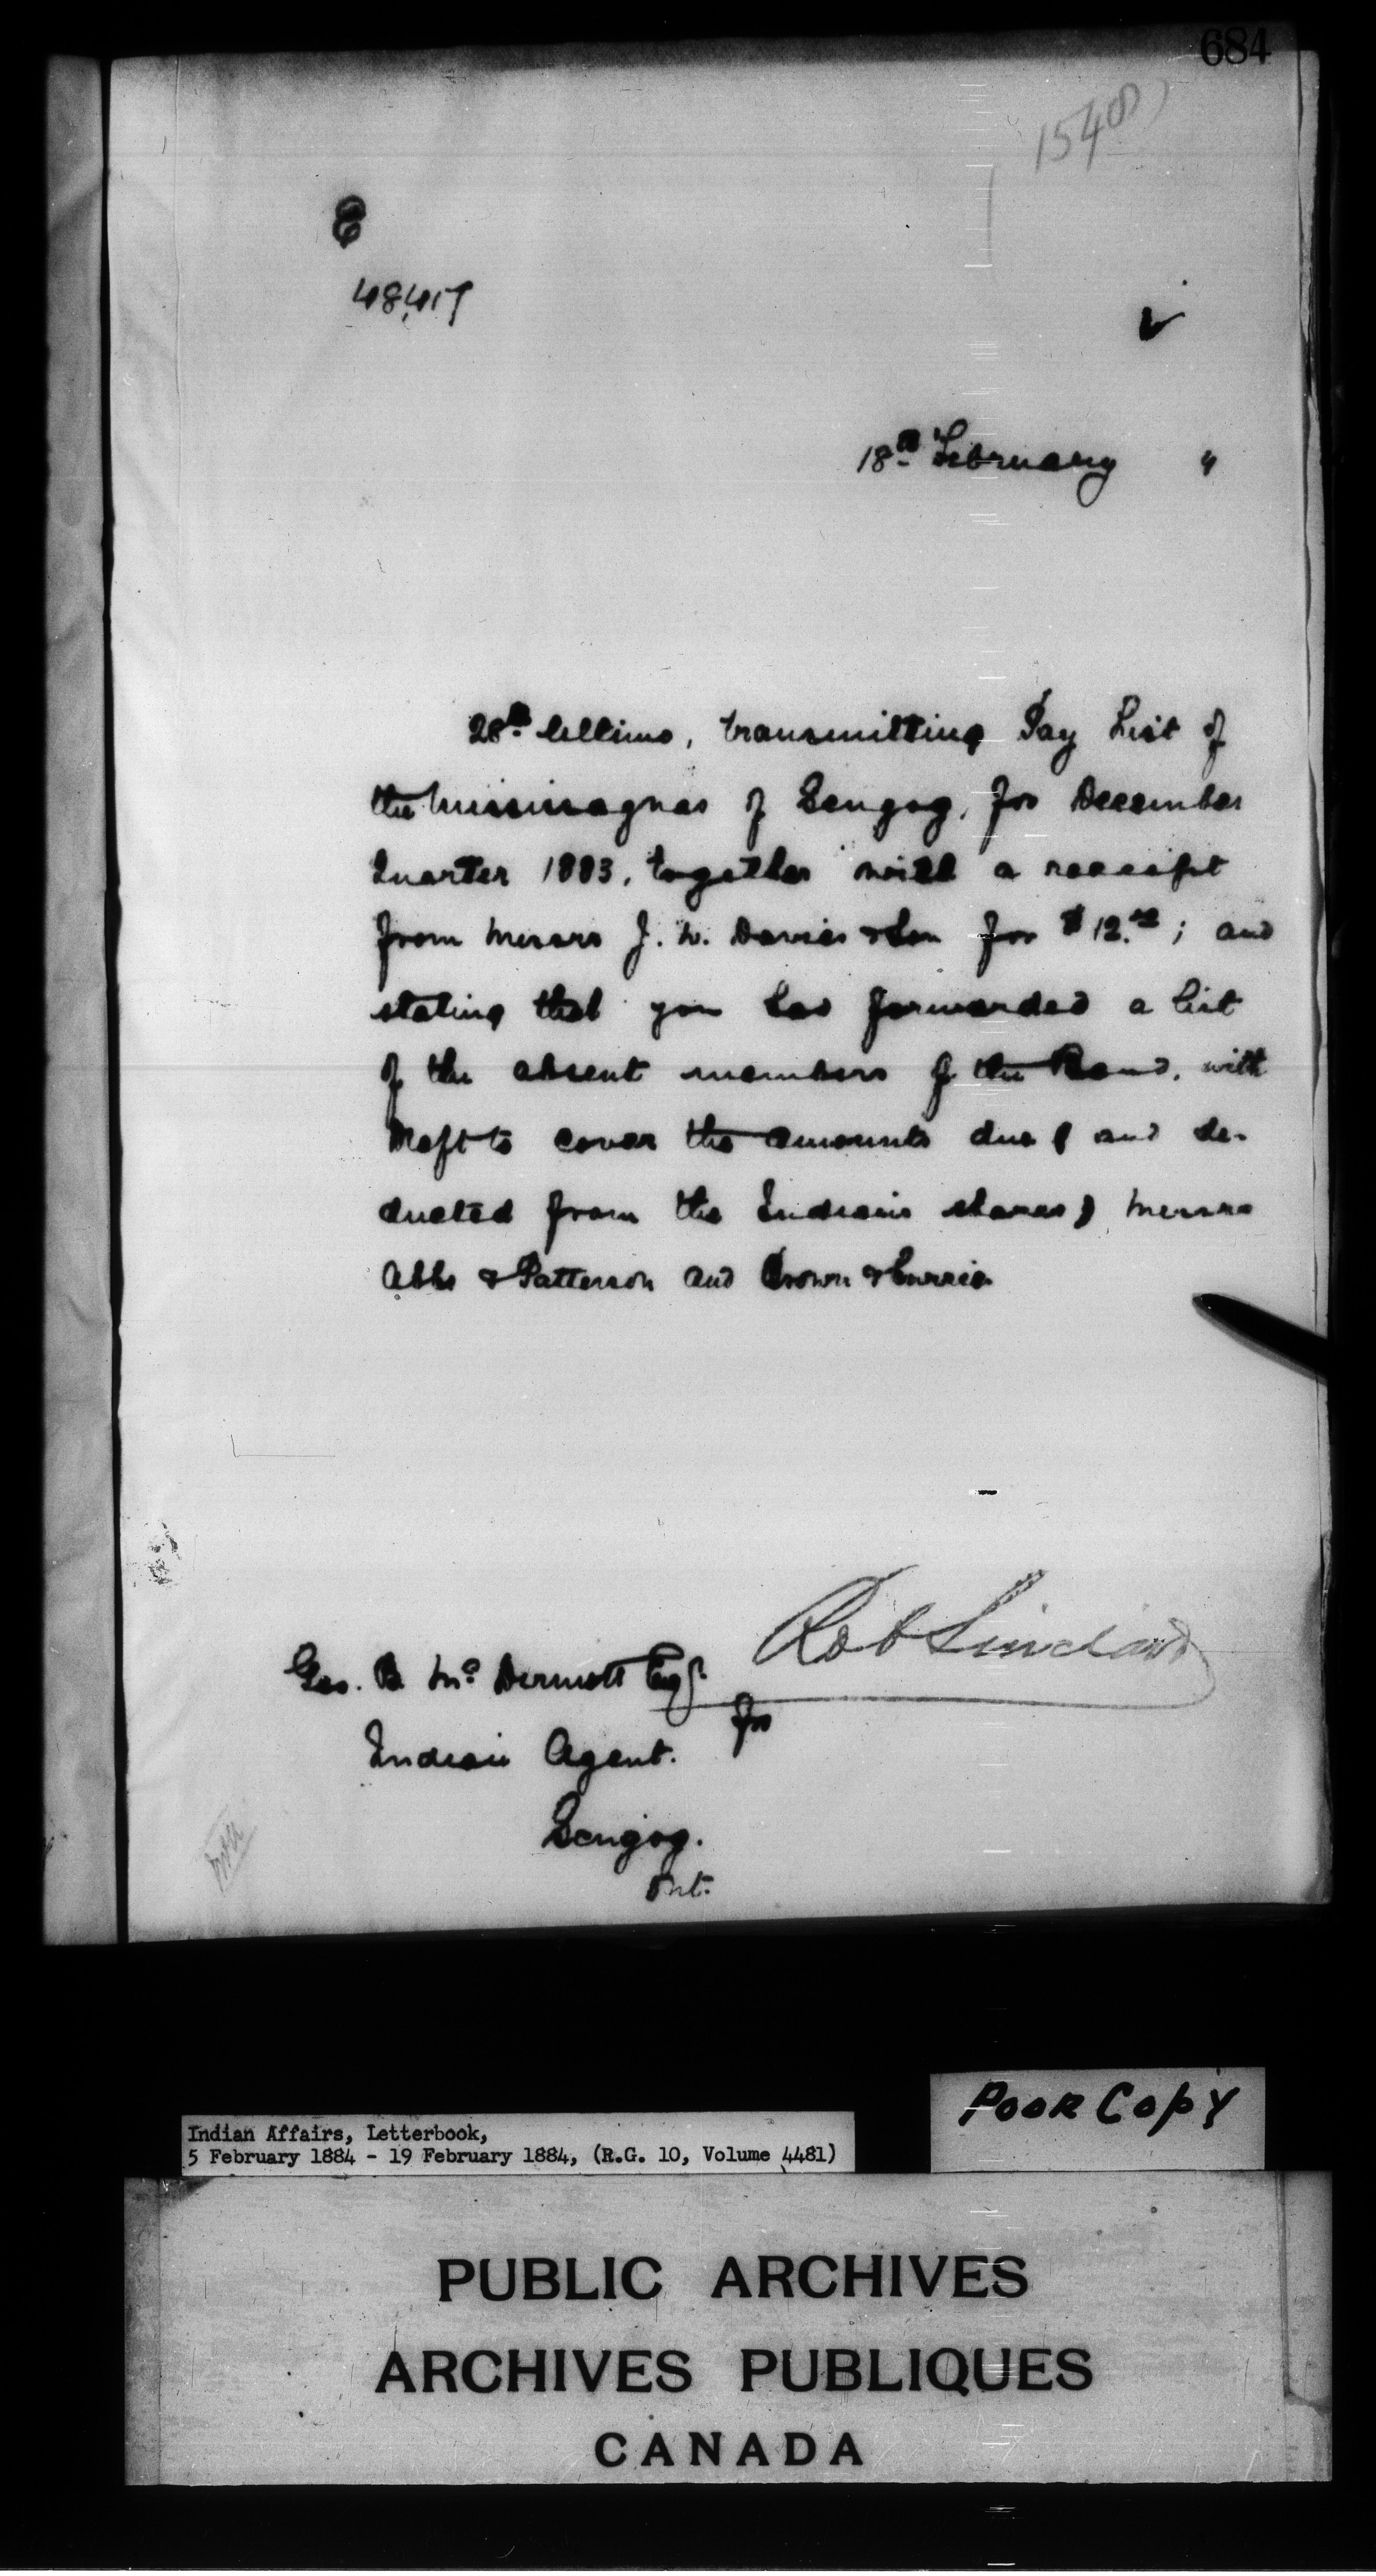 684
1540
48,417
18th February "
28th Ultimo, transmitting Pay List of
the Mississaguas of Scugog, for December
Quarter 1883, together with a receipt
from Messrs J. W. Davies & Son for $12.00; and
stating that you had forwarded a list
of the absent members of the Band, with
Dft to cover the amounts due (and de-
ducted from the Indians shares) Messrs
Abbs & Patterson and Brown & Currie
Rob Sinclair
Geo. B. McDermott Esq.
for
Indian Agent.
Scugog.
Ont.
POOR COPY
Indian Affairs, Letterbook,
5 February 1884 - 19 February 1884, (R.G. 10, Volume 4481)
PUBLIC ARCHIVES
ARCHIVES PUBLIQUES
CANADA